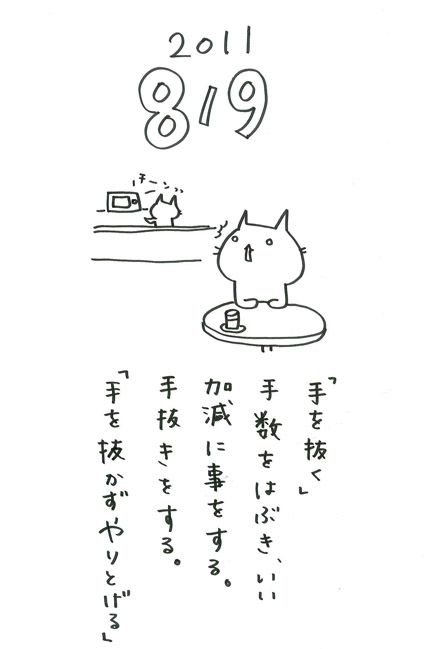 2011
8/9
チーン
「手を抜く」
手数をはぶき、いい
加減に事をする。
手抜きをする。
「手を抜かずやりとげる」